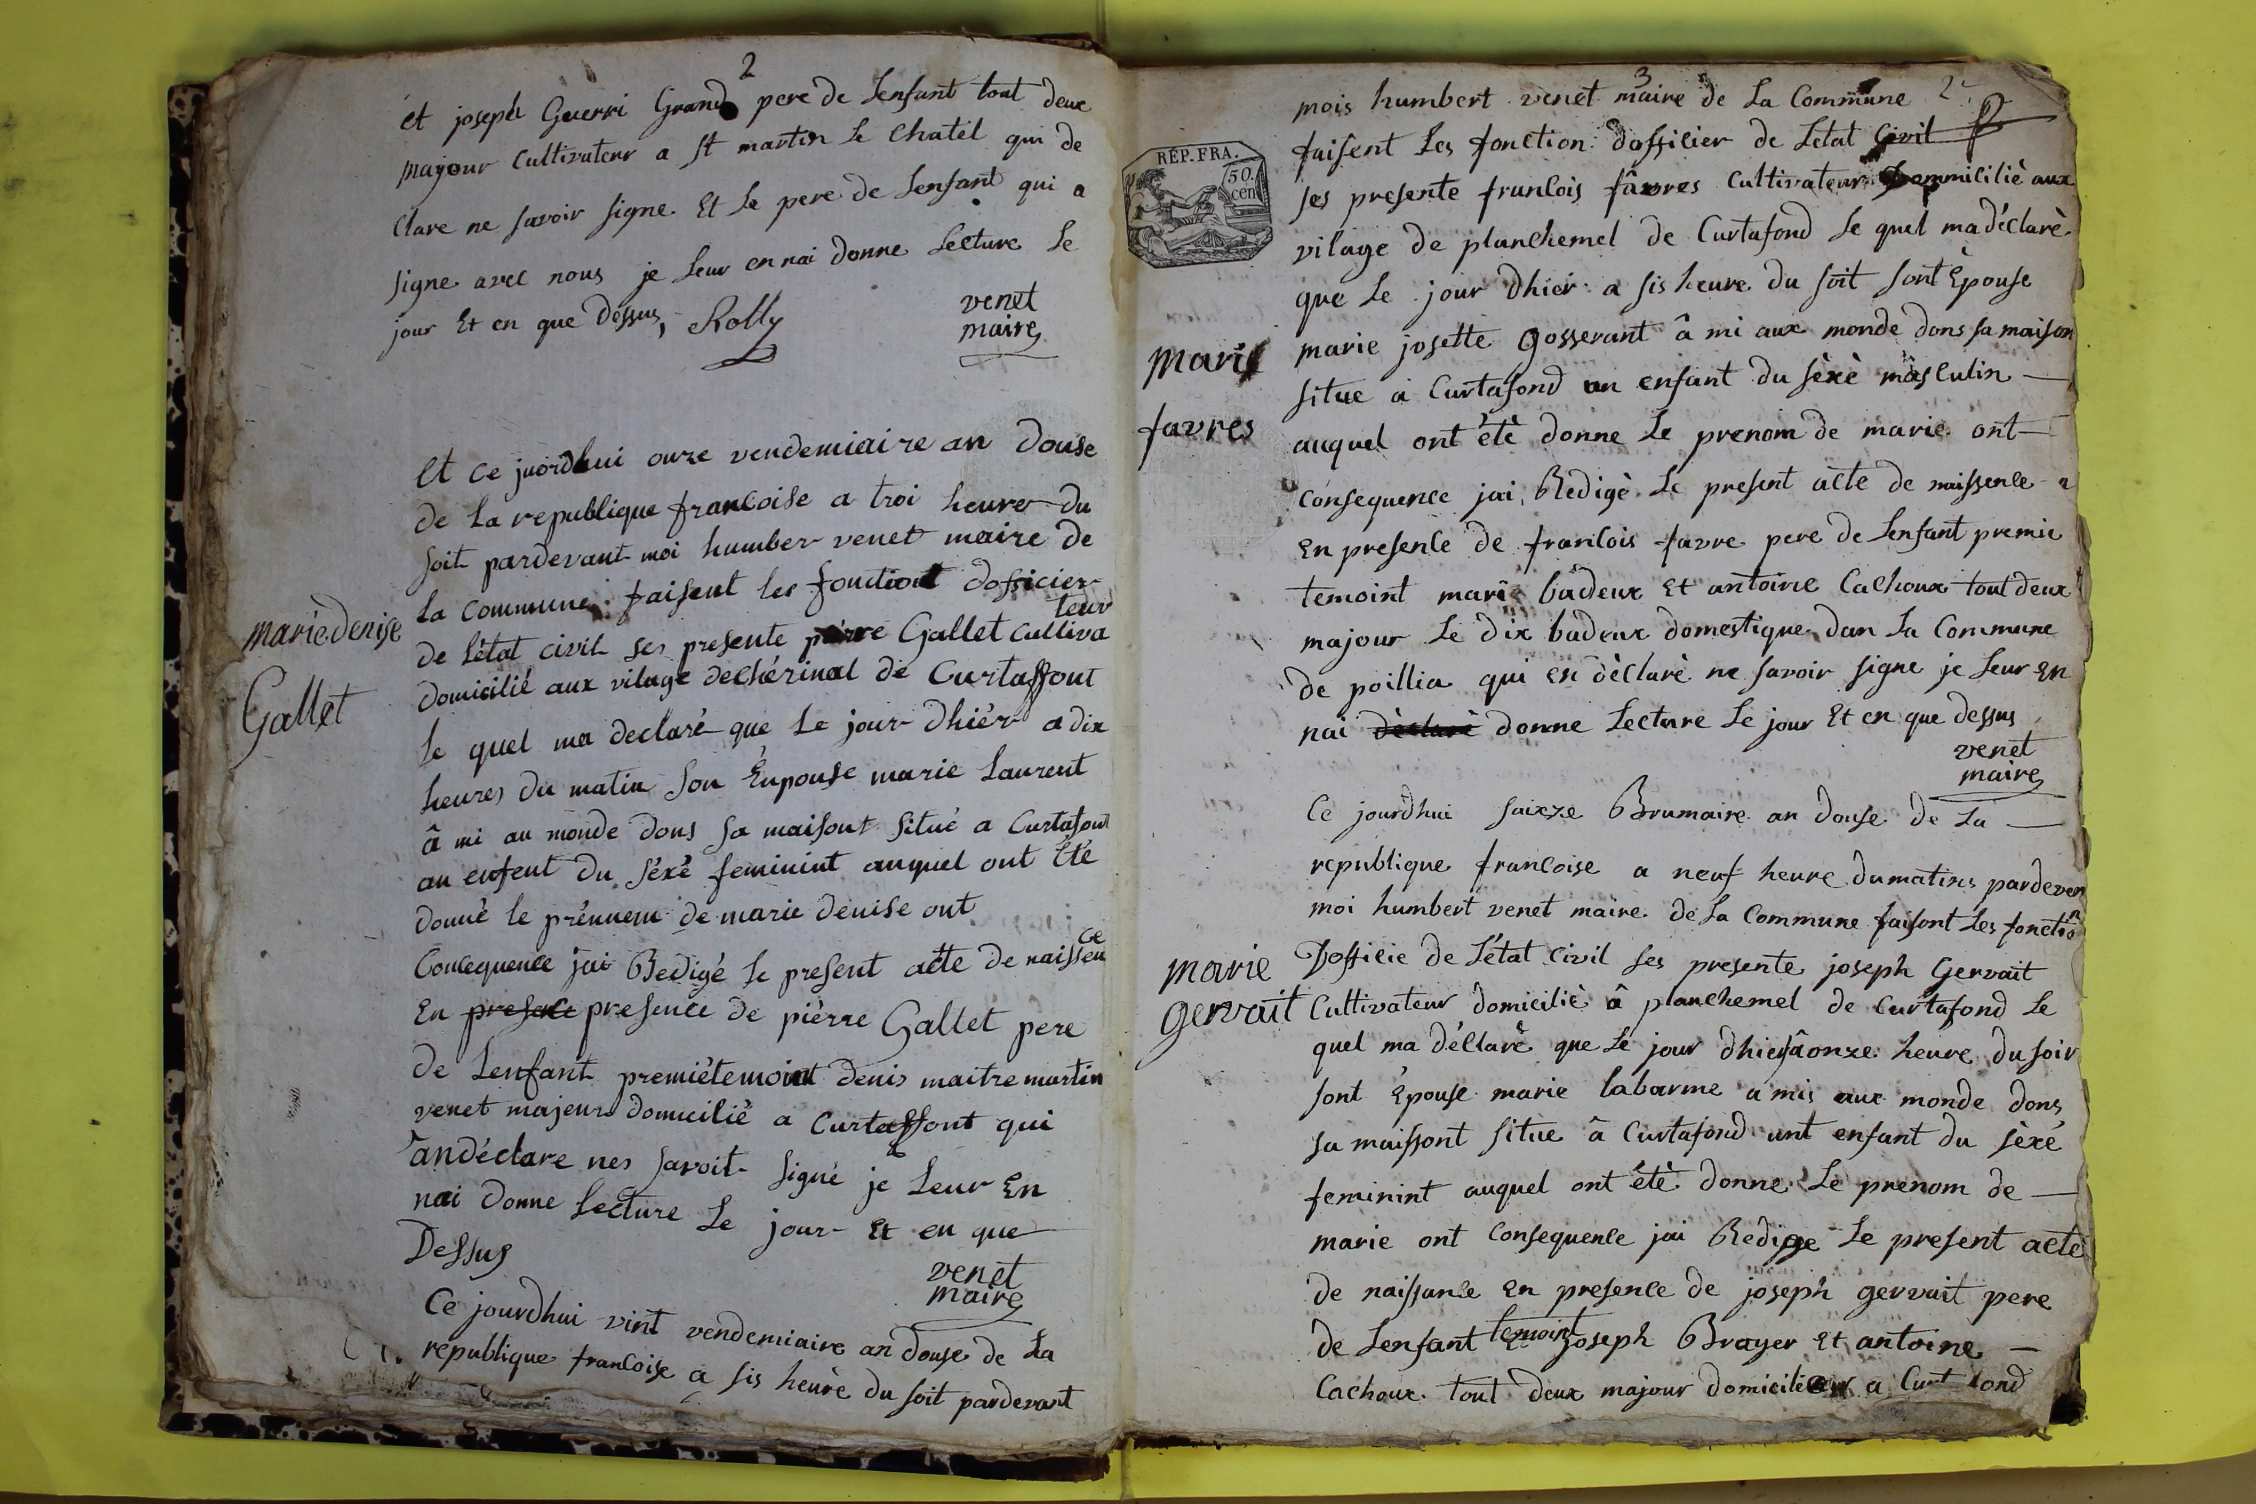 2
et joseph Guerri Grand pere de Lenfant tout deux
majour Cultivateur a st martin Le Chatel qui de
Clare ne savoir signe Et Le pere de Lenfant qui a
signe avec nous je Leur en nai donne Lecture Le
jour Et en que dessus, Rolly
venet
maire
et ce juordhui onze vendemiaire an douse
de La republique francoise a troi heures du
soit pardevant moi humber venet maire de
La commune faisent les fonctiont dofficier
de Létat civil ses presente pierre Gallet Cultiva
teur
domicilié aux vilage de chérinal de Curtaffont
le quel ma declaré que Le jour dhiér a dix
heures du matin son Enpouse marie Laurent
â mi au monde dons sa maisont situé a Curtafont
an enfent du séxé feminint auquel ont Eté
donné le prénnem de marie denise ont
Concequence jai Redigé le present acte de naissen
ce
En presence presence de piérre Gallet pere
de Lenfant premiétemoint denis maitre martin
venet majeur domicilié a Curtaffont qui
andéclare nes savoit signé je Leur En
nai donne Lecture Le jour Et en que
Dessus
venet
maire
Ce jourdhui vint vendemiaire an douse de La
republique francoise a sis heure du soit pardevant
marie denise
Gallet
3
2
mois humbert venet maire de La Commune
faisent Les fonction dossilier de Létat Civil
ses presente francois fâvres Cultivateur dommicilié aux
vilage de planchemel de Curtafond Le quel ma déclaré
que Le jour dhiér a sis heure du soit sont Epouse
marie josette gosserant â mi aux monde dons sa maison
situe a Curtafond un enfant du sèxè màsculin
auquel ont étè donne Le prenom de marie ont
consequence jai Redigè Le present acte de naissence
En presence de francois favre pere de Lenfant premie
temoint marie bâdeux Et antoine Cachoux tout deux
majour Le dix badeux domestique dan La Commune
de poillia qui en dèclarè ne savoir signe je Leur En
nai dèclarè donne Lecture Le jour Et en que dessus
venet
maire
Ce jourdhui saixze Brumaire an douse de La
republique francoise a neuf heure du matins pardeven
moi humbert venet maire de La Commune faisont Les fonctio
Dofficie de Létat Civil ses presente joseph Gervait
Cultivateur domiciliè â planchemel de Curtafond Le
quel ma déclarê que Le jour dhier â onze heure du soir
sont Epouse marie labarme a mis aux monde dons
sa maissont situe â Curtafond unt enfant du sèxé
feminint auquel ont étè donne Le prenom de
marie ont Consequence jai Redige Le present acte
de naissance En presence de joseph gervait pere
de Lenfant temoint joseph Brayer Et antoine
Cachoux tout deux majour domicilie a Curtafond
RÉP. FRA.
50.
cen
marie
favres
marie
gervait